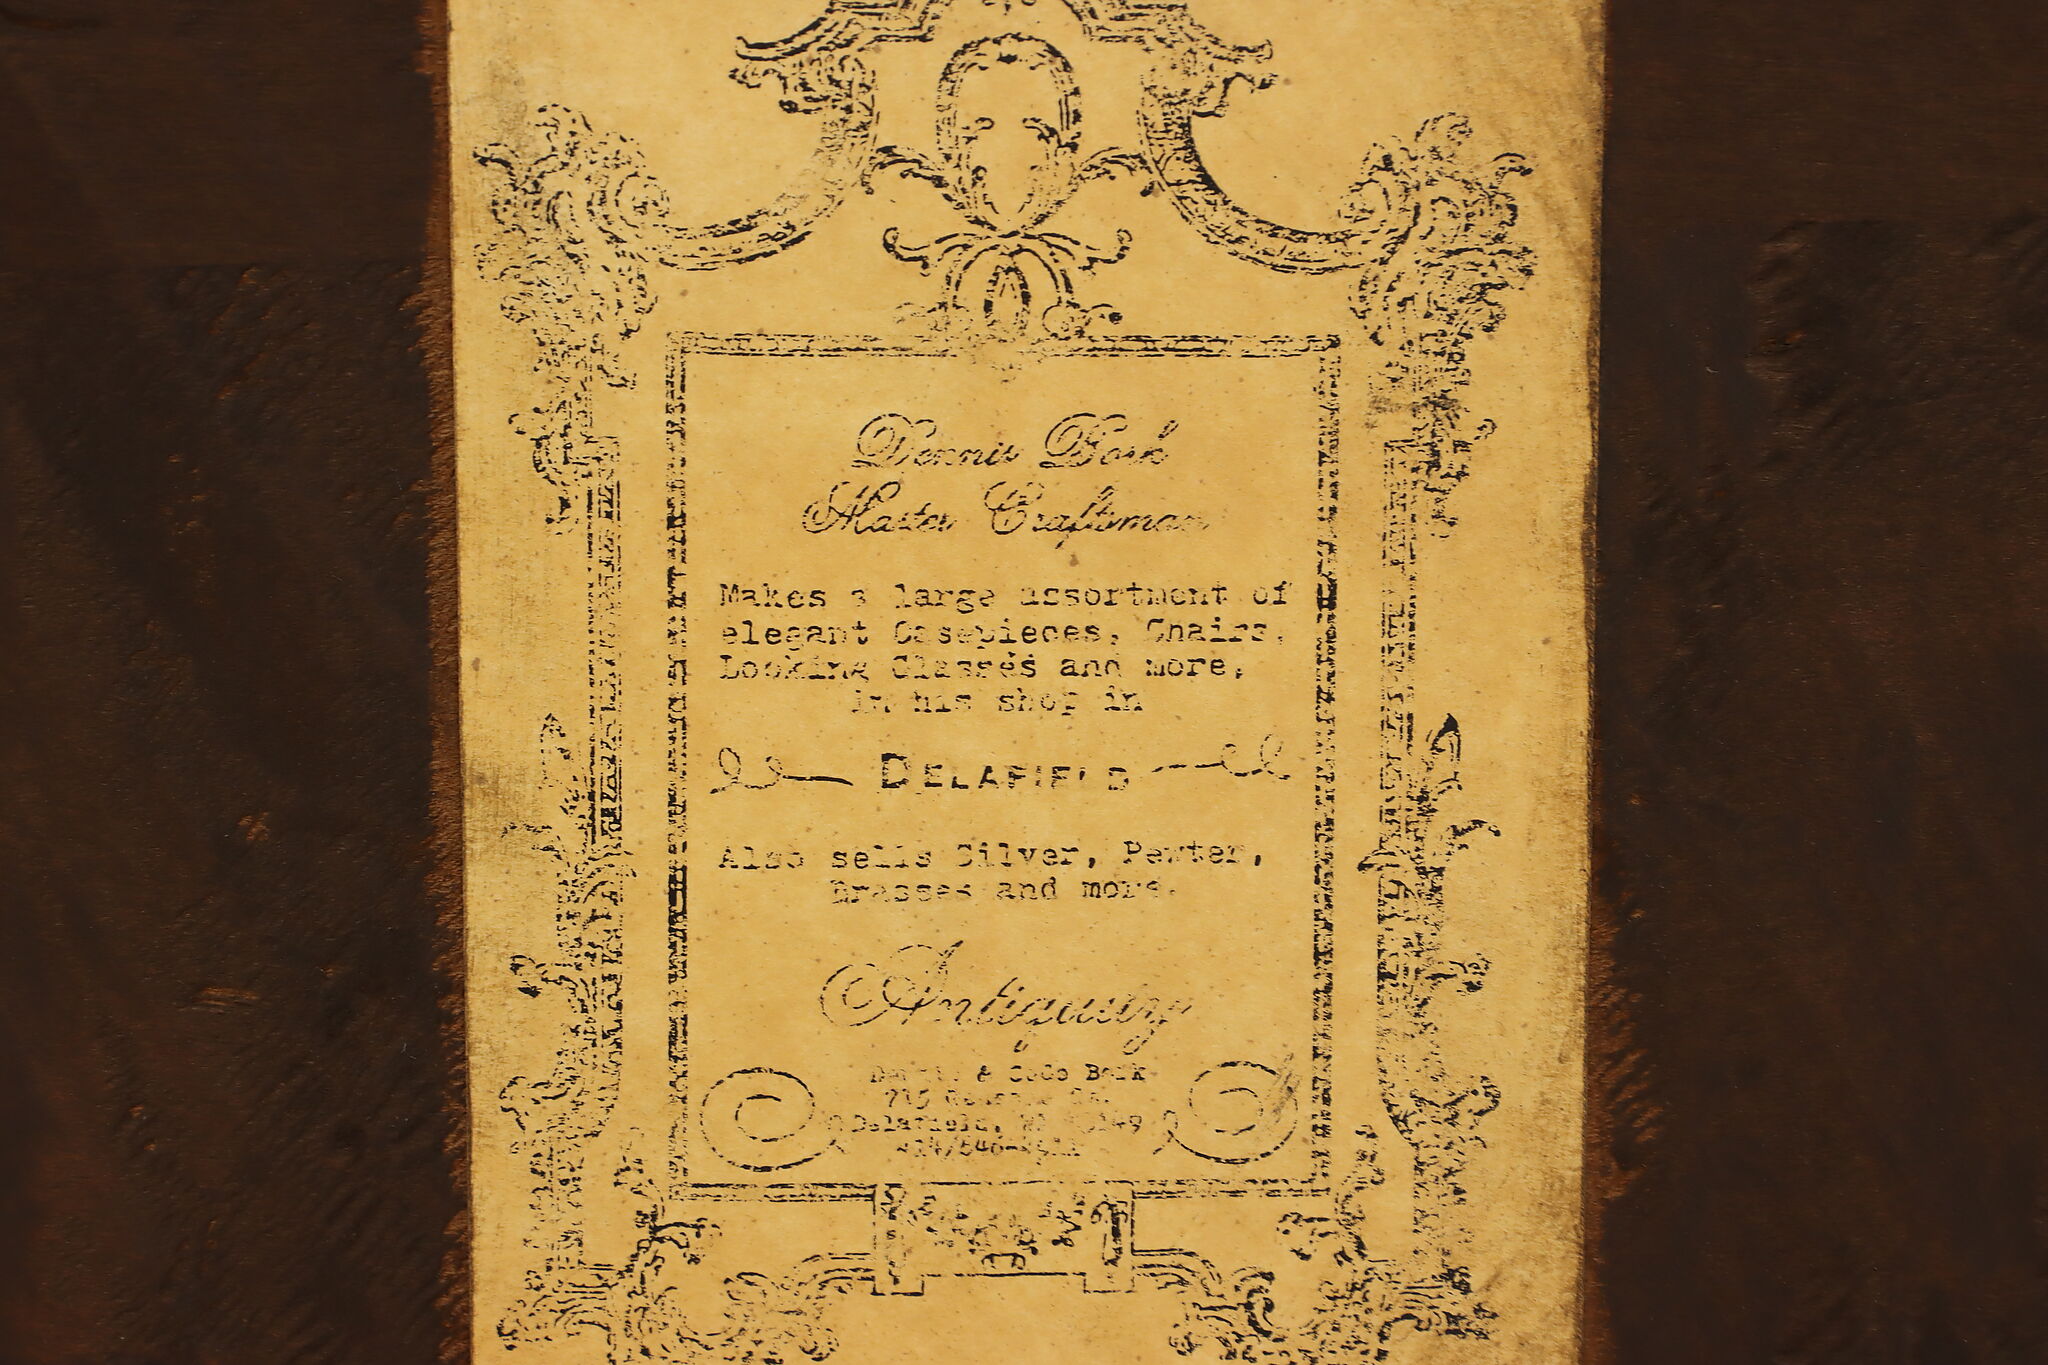 Dennis Bork
Master Craftsman
Makes a large assortment of
elegant Casepieces, Chairs,
Looking Glasses and more,
in his shop in
DELAFIELD
Also sells Silver, Pewter,
Brasses and more.
Antiquity
Dennis & CoCo Bork
715
Delafield, WI